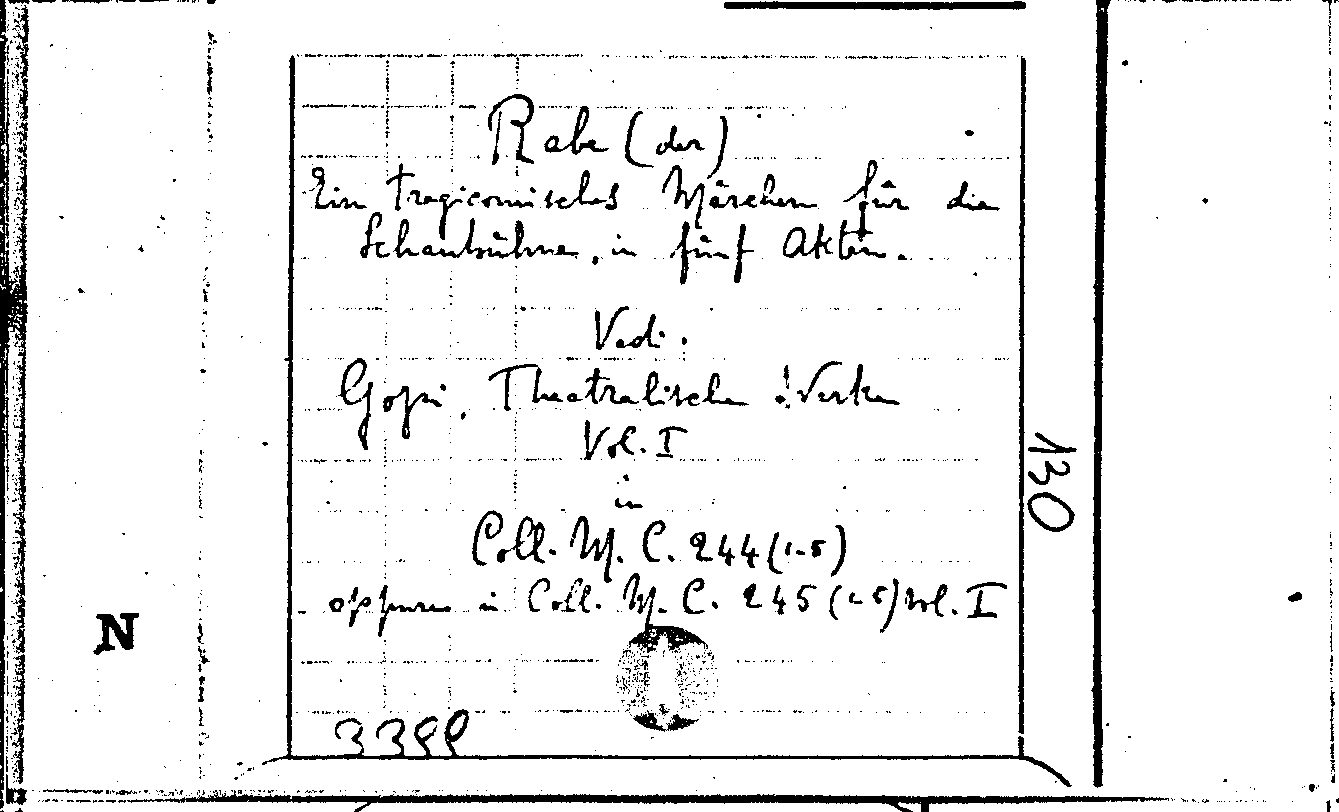 Rabe (der)
Ein tragicomisches Märchen für die
Schaubühne, in fünf Akten.
Vedi.
Gozzi, Theatralische Werke
Vol. I
in
Coll. M. C. 244 (1-5)
oppure in Coll. M. C. 245 (1-5) vol. I
130
N